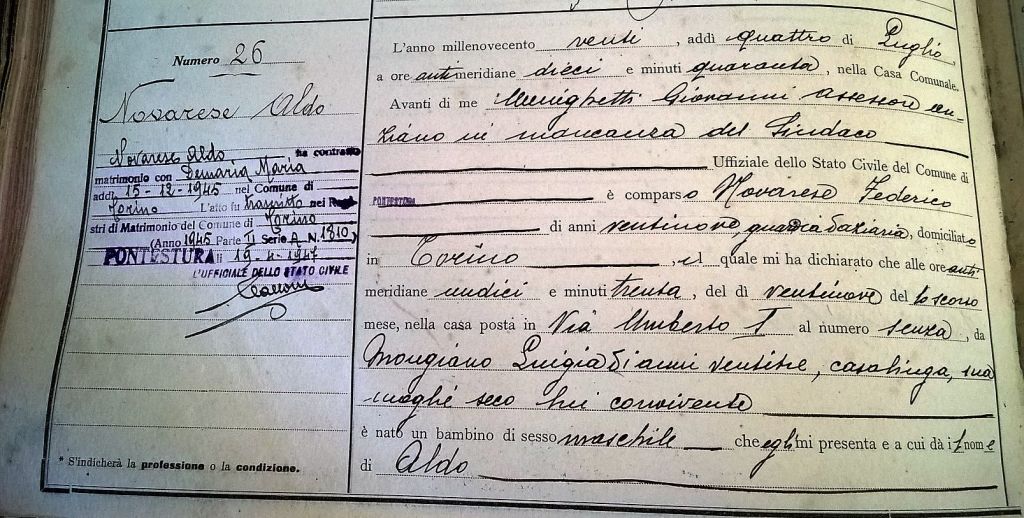 Numero 26
Novarese Aldo
Novarese Aldo ha contratto
matrimonio con Demaria Maria
addì 15-12-1945 nel Comune di
Torino L'atto fu trascritto nei Regi-
stri di Matrimonio del Comune di Torino
(Anno 1945 Parte II Serie A N. 1810)
PONTESTURA lì 19-4-1947
L'UFFICIALE DELLO STATO CIVILE
* S'indicherà la professione o la condizione.
L'anno millenovecento venti, addì quattro di Luglio,
a ore antimeridiane dieci e minuti quaranta, nella Casa Comunale.
Avanti di me Menighetti Giovanni assessore an-
ziano in mancanza del Sindaco
Uffiziale dello Stato Civile del Comune di
PONTESTURA è comparso Novarese Federico
di anni ventinove, guardia daziaria, domiciliato
in Torino, il quale mi ha dichiarato che alle ore anti-
meridiane undici e minuti trenta, del dì ventinove del lo scorso
mese, nella casa posta in Via Umberto I al numero senza, da
Mongiano Luigia di anni ventitre, casalinga, sua
moglie seco lui convivente
è nato un bambino di sesso maschile che egli mi presenta e a cui dà il nome
di Aldo